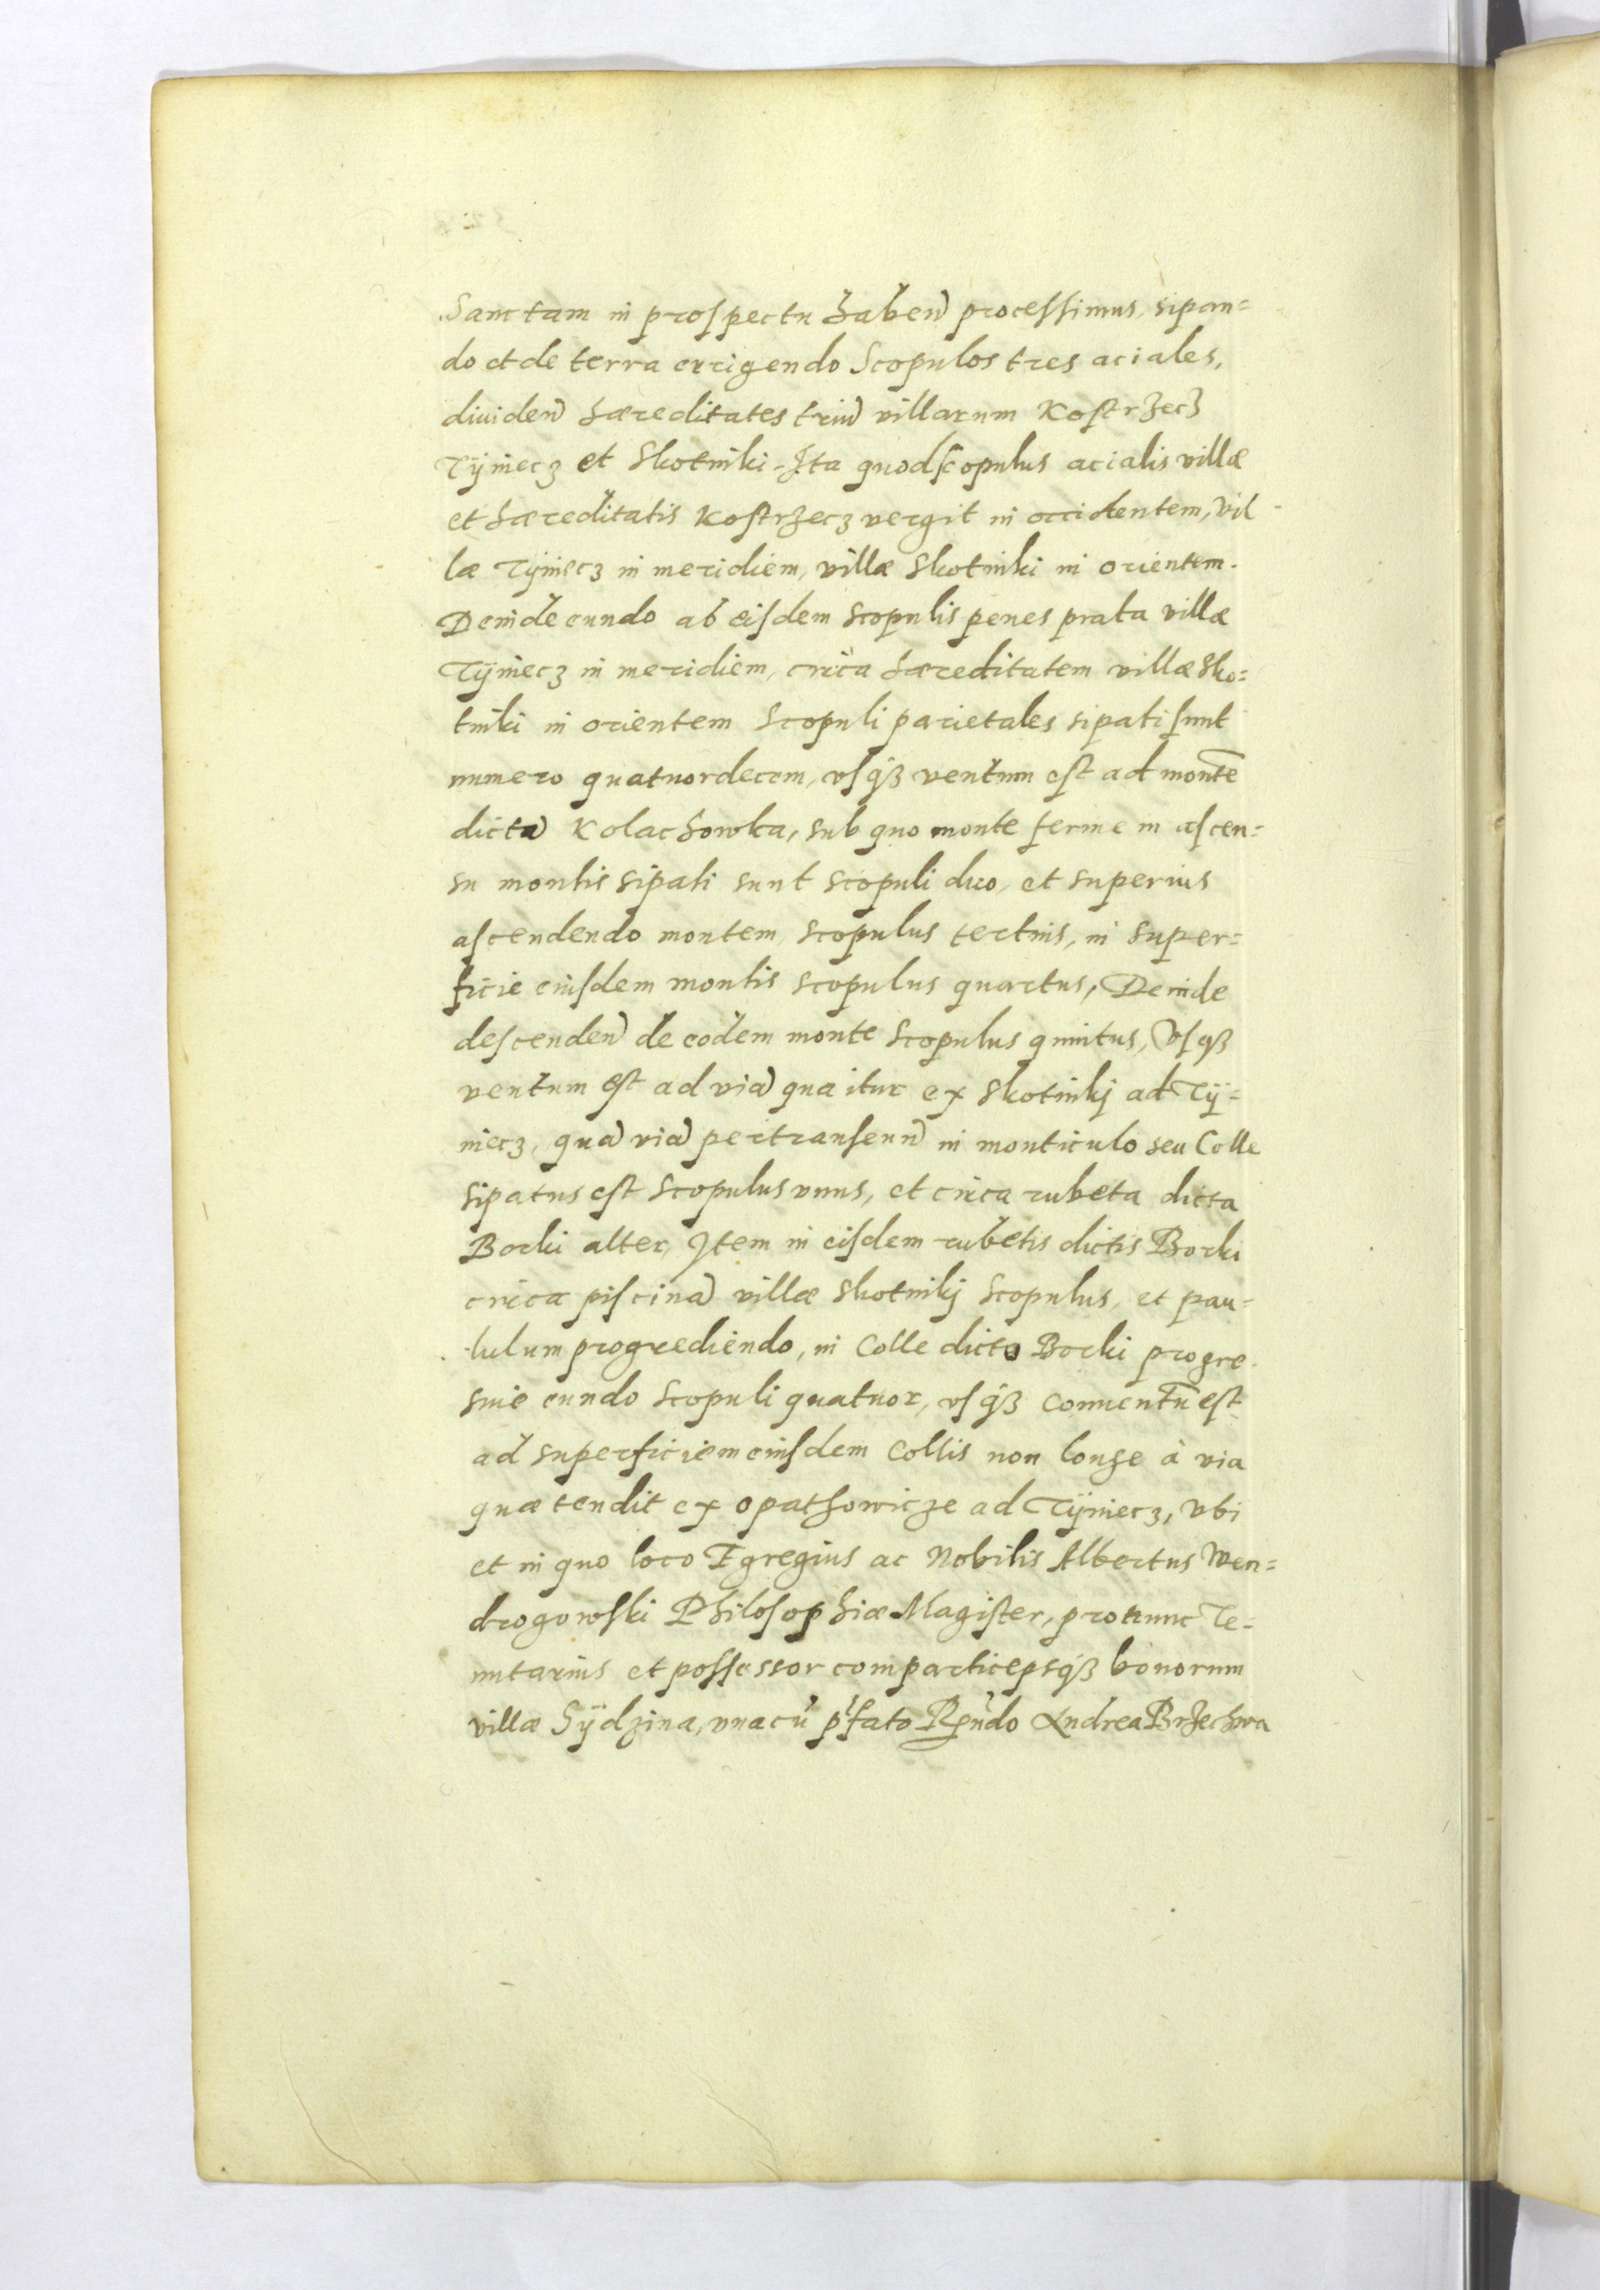 Sanctam in prospectu haben̄ processimus, sipan=
do et de terra errigendo Scopulos tres aciales,
diuiden̄ hæreditates triū villarum Kostrzecz
Tÿniecz et Skotniki. Ita quod scopulus acialis villæ
et hæreditatis Kostrzecz vergit in occidentem, vil
læ Tÿniecz in meridiem, villæ Skotniki in orientem.
Deinde eundo ab eisdem scopulis penes prata villæ
Tÿniecz in meridiem, circa hæreditatem villæ Sko=
tniki in orientem Scopuli parietales sipati sunt
numero quatuordecem, vsq₃ ventum est ad montē
dictā Kolachowka, sub quo monte ferme in ascen=
su montis sipati sunt scopuli duo, et superius
ascendendo montem scopulus tertius, in super=
ficie eiusdem montis scopulus quartus, Deinde
descenden̄ de eodem monte scopulus quintus, Vsq₃
ventum est ad viā qua itur ex Skotnikj ad Tÿ=
niecz, quā viā pertranseun̄ in monticulo seu Colle
sipatus est scopulus vnus, et circa rubeta dicta
Borki alter, Item in eisdem rubetis dictis Borki
circa piscinā villæ Skotnikj Scopulus, et pau=
lulum progrediendo, in Colle dicto Borki progre
siue eundo scopuli quatuor, vsq₃ conuentū est
ad superficiem eiusdem Collis non longe à via
quæ tendit ex opathowicze ad Tÿniecz, vbi
et in quo loco Egregius ac Nobilis Albertus Wen=
drogowski Philosophiæ Magister, pro nunc Te=
nutarius et possessor comparticepsq₃ bonorum
villæ Sÿdzina, vnacū p̄fato Rn̄do Andrea Brzechwa